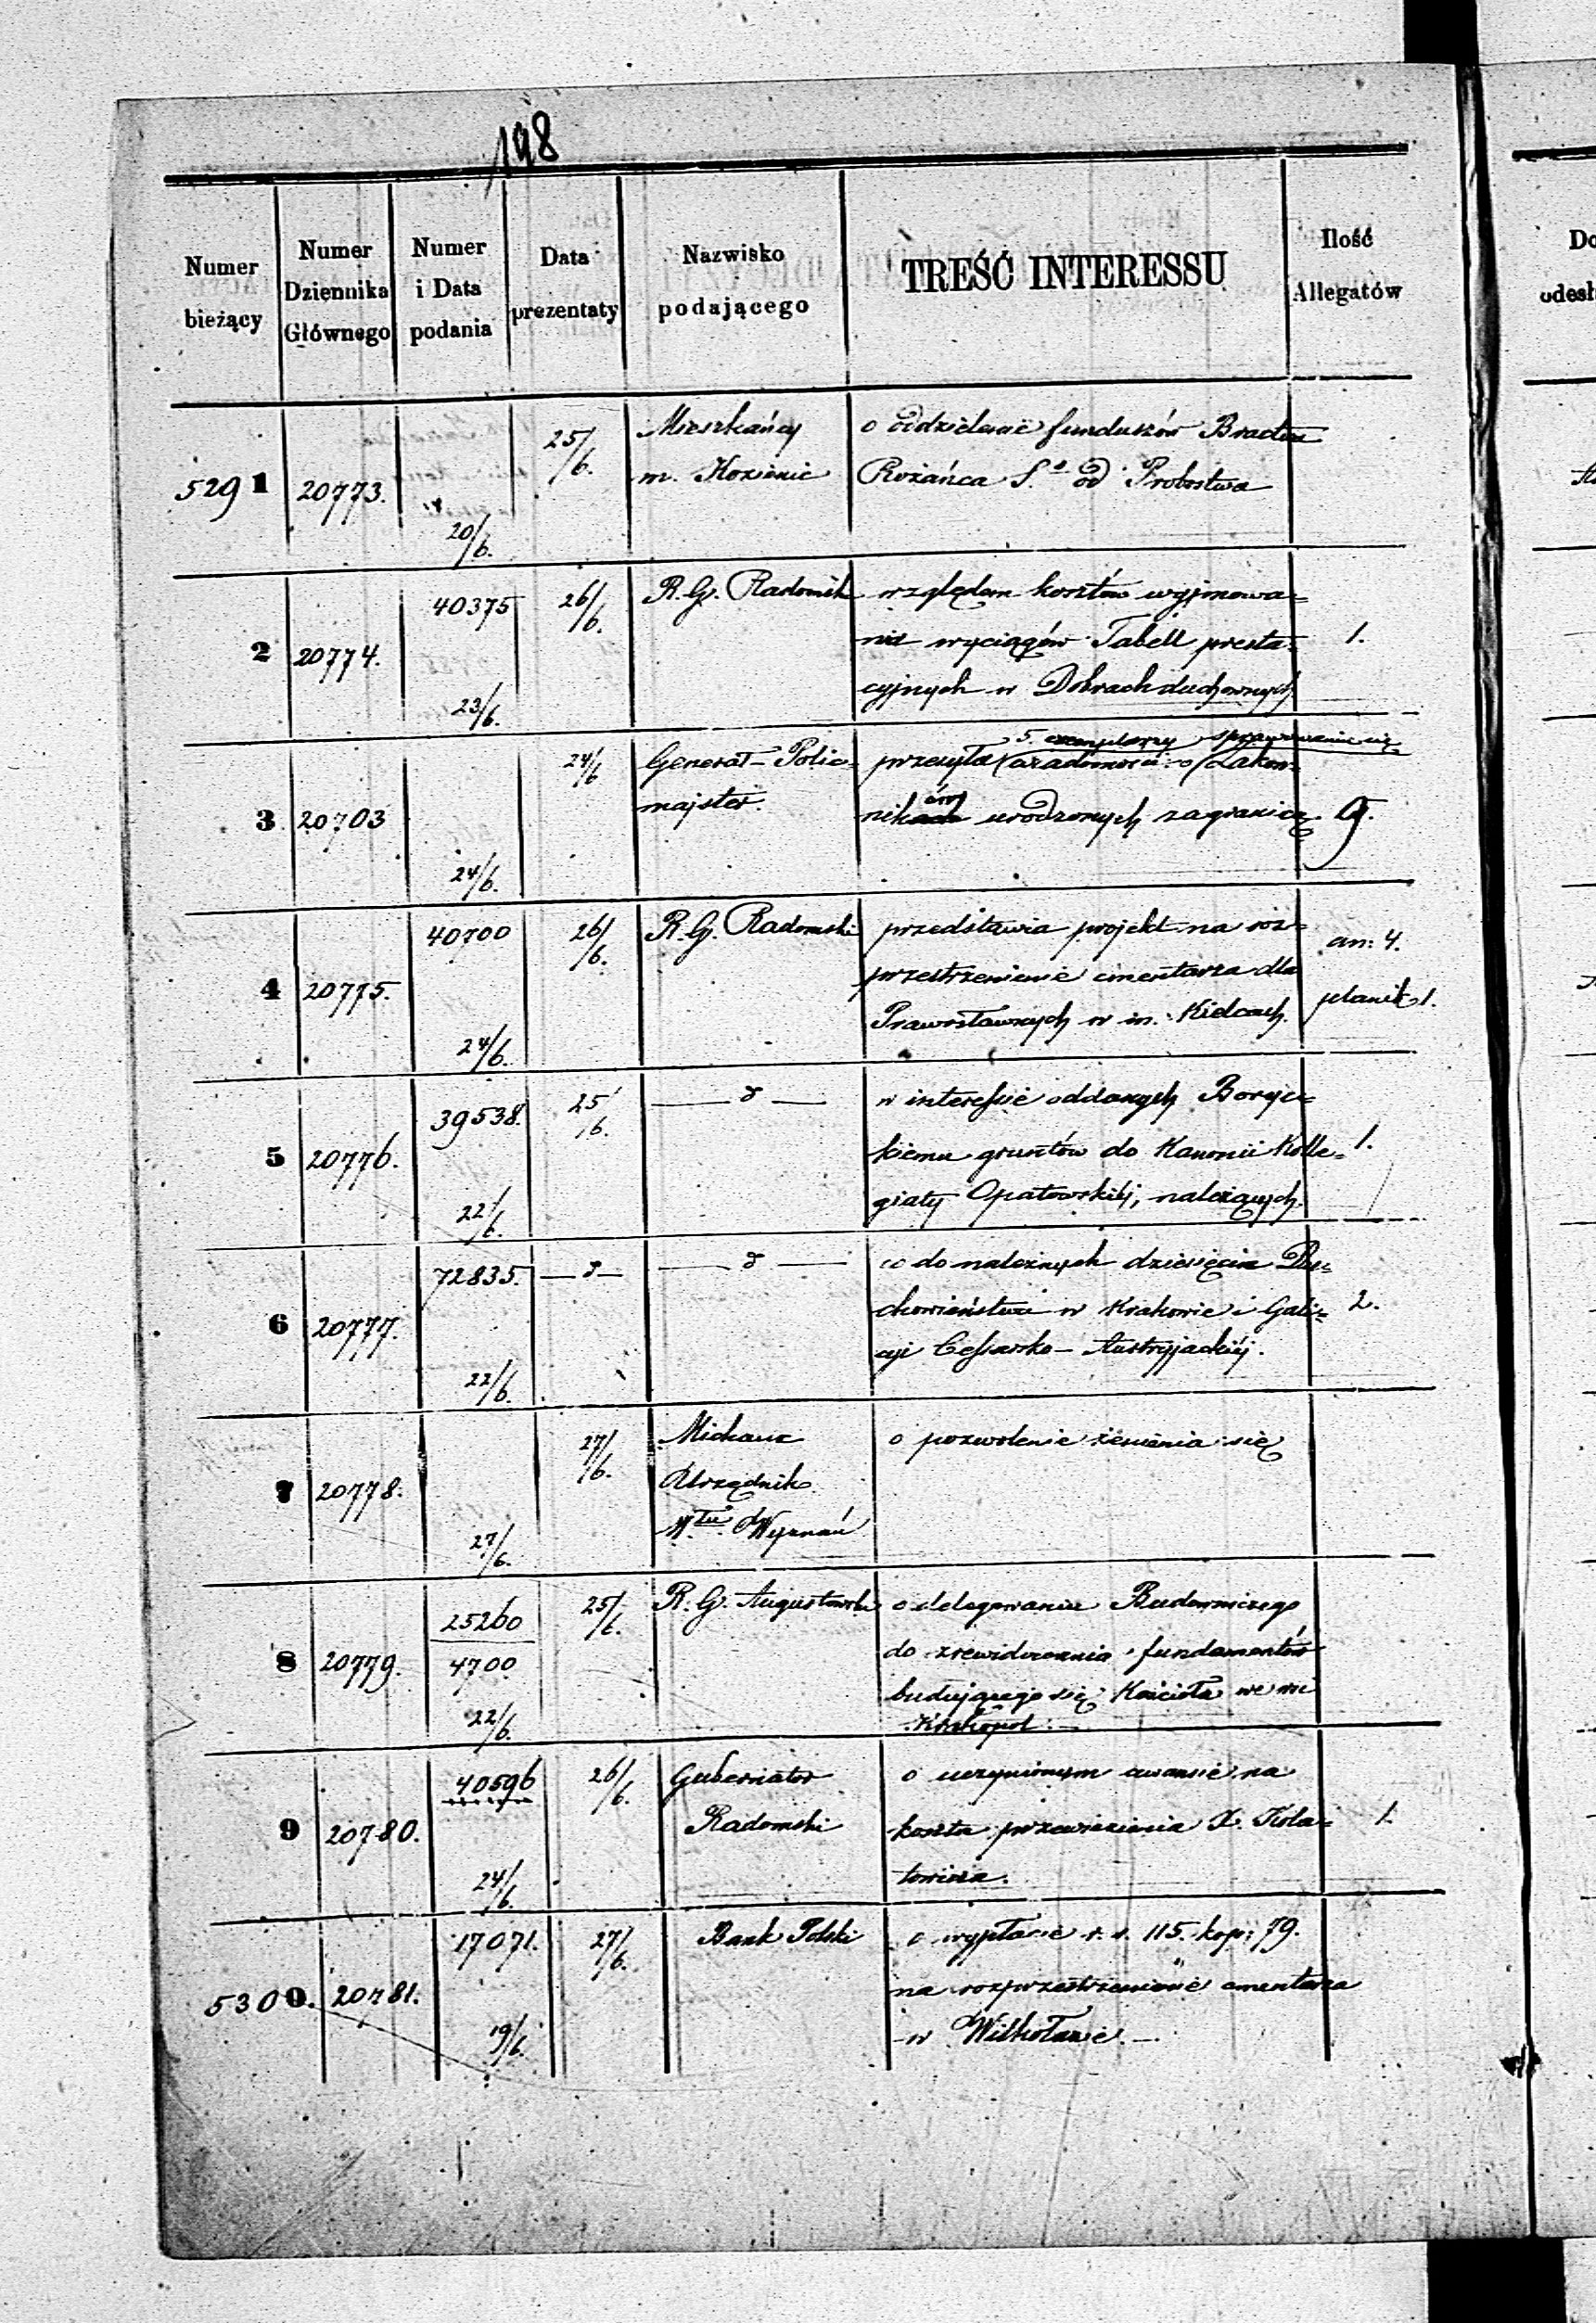 198
Numer bieżący
Numer Dziennika Głównego
Numer i Data podania
Data prezentaty
Nazwisko podającego
TREŚĆ INTERESSU
Ilość Allegatów
5291 20773. 20/6. 25/6.
Mieszkańcy
m. Kozienic
o oddzielenie funduszów Bractwa
Rożańca Sgo od Probostwa
2 20774. 40375 23/6. 26/6.
R. G. Radomsk
względem kosztów wyjmowa=
nia wyciągów Tabell presta=
cyjnych w Dobrach duchownych
1.
3 20703 24/6. 24/6
Generał-Polic=
majster.
5. exemplarzy sprawowanie się
przesyła wiadomości o Zakon=
nikach óm urodzonych zagranicą
9.
4 20775. 40700 24/6. 26/6.
R. G. Radomski
przedstawia projekt na roz=
przestrzenienie cmentarza dla
Prawosławnych w m. Kielcach.
an: 4.
planik 1.
5 20776. 39538. 22/6. 25/6.
— d —
w interessie oddanych Boryc=
kiemu gruntów do Kanonii Kolle=
giaty Opatowskiéj, należących.
1.
6 20777. 72835. 22/6. — d —
— d —
co do należnych dziesięcin Du=
chowieństwu w Krakowie i Gali=
cyi Cessarsko-Austryjackiéj.
2.
7 20778. 27/6. 27/6.
Urzędnik
Wyznań
o pozwolenie żenienia się
8 20779. 25260
4700
22/6. 25/6.
R. G. Augustowski
o delegowanie Budowniczego
do zrewidowania fundamentów
budującego się Kościoła we wsi
9 20780. 40596 24/6. 26/6.
Gubernator
Radomski
o uczynionym awansie na
koszta przewiezienia X. Kola=
towicza.
1.
5300. 20781. 17071. 19/6. 27/6.
Bank Polski
o wypłacie r. s. 115. kop: 79.
na rozprzestrzenienie cmentarza
w Wilkołazie.